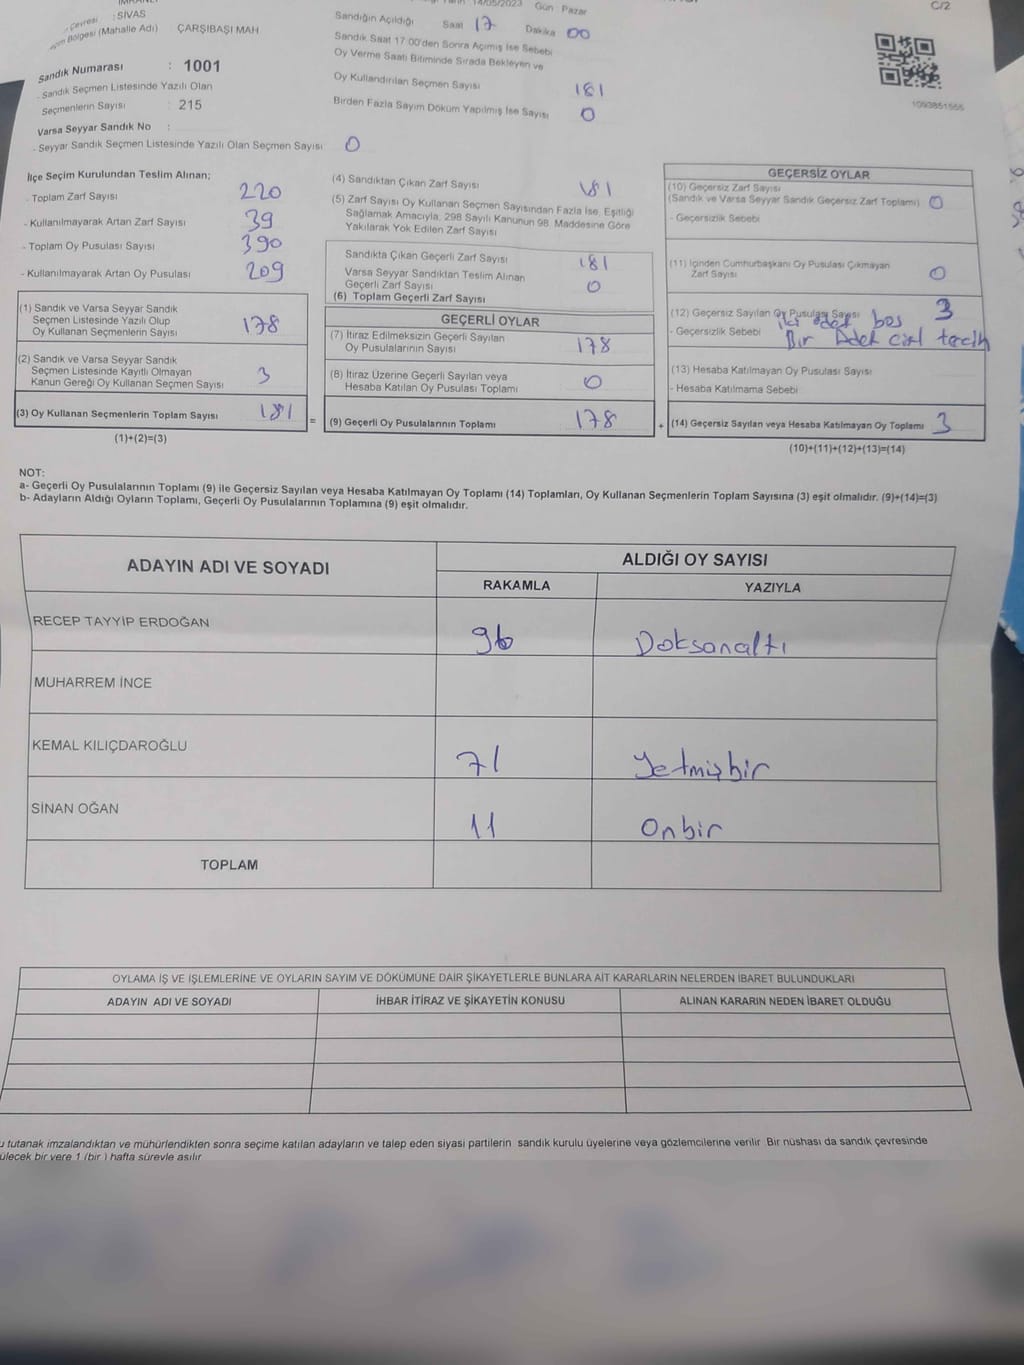 : SİVAS
C/2
14/05/2023 Gün : Pazar
Bölgesi (Mahalle Adı) ÇARŞIBAŞI MAH.
Sandığın Açıldığı Saat 17 Dakika 00
Sandık Saat 17:00'den Sonra Açımış İse Sebebi
Oy Verme Saati Bitiminde Sırada Bekleyen ve
Oy Kullandırılan Seçmen Sayısı 181
Birden Fazla Sayım Döküm Yapılmış İse Sayısı 0
1093851555
Sandık Numarası : 1001
- Sandık Seçmen Listesinde Yazılı Olan
Seçmenlerin Sayısı : 215
Varsa Seyyar Sandık No :
- Seyyar Sandık Seçmen Listesinde Yazılı Olan Seçmen Sayısı 0
İlçe Seçim Kurulundan Teslim Alınan;
- Toplam Zarf Sayısı 220
- Kullanılmayarak Artan Zarf Sayısı 39
- Toplam Oy Pusulası Sayısı 390
- Kullanılmayarak Artan Oy Pusulası 209
(1) Sandık ve Varsa Seyyar Sandık
Seçmen Listesinde Yazılı Olup
Oy Kullanan Seçmenlerin Sayısı 178
(2) Sandık ve Varsa Seyyar Sandık
Seçmen Listesinde Kayıtlı Olmayan
Kanun Gereği Oy Kullanan Seçmen Sayısı 3
(3) Oy Kullanan Seçmenlerin Toplam Sayısı 181
(1)+(2)=(3)
=
(4) Sandıktan Çıkan Zarf Sayısı 181
(5) Zarf Sayısı Oy Kullanan Seçmen Sayısından Fazla İse, Eşitliği
Sağlamak Amacıyla, 298 Sayılı Kanunun 98. Maddesine Göre
Yakılarak Yok Edilen Zarf Sayısı
Sandıkta Çıkan Geçerli Zarf Sayısı 181
Varsa Seyyar Sandıktan Teslim Alınan
Geçerli Zarf Sayısı 0
(6) Toplam Geçerli Zarf Sayısı
GEÇERLİ OYLAR
(7) İtiraz Edilmeksizin Geçerli Sayılan
Oy Pusulalarının Sayısı 178
(8) İtiraz Üzerine Geçerli Sayılan veya
Hesaba Katılan Oy Pusulası Toplamı 0
(9) Geçerli Oy Pusulalarının Toplamı 178
+
GEÇERSİZ OYLAR
(10) Geçersiz Zarf Sayısı
(Sandık ve Varsa Seyyar Sandık Geçersiz Zarf Toplamı) 0
- Geçersizlik Sebebi
(11) İçinden Cumhurbaşkanı Oy Pusulası Çıkmayan
Zarf Sayısı 0
(12) Geçersiz Sayılan Oy Pusulası Sayısı 3
iki adet boş
- Geçersizlik Sebebi Bir Adet çift tercih
(13) Hesaba Katılmayan Oy Pusulası Sayısı
- Hesaba Katılmama Sebebi
(14) Geçersiz Sayılan veya Hesaba Katılmayan Oy Toplamı 3
(10)+(11)+(12)+(13)=(14)
NOT:
a- Geçerli Oy Pusulalarının Toplamı (9) ile Geçersiz Sayılan veya Hesaba Katılmayan Oy Toplamı (14) Toplamları, Oy Kullanan Seçmenlerin Toplam Sayısına (3) eşit olmalıdır. (9)+(14)=(3)
b- Adayların Aldığı Oyların Toplamı, Geçerli Oy Pusulalarının Toplamına (9) eşit olmalıdır.
ADAYIN ADI VE SOYADI ALDIĞI OY SAYISI
RAKAMLA YAZIYLA
RECEP TAYYİP ERDOĞAN 96 Doksanaltı
MUHARREM İNCE
KEMAL KILIÇDAROĞLU 71 Yetmişbir
SİNAN OĞAN 11 Onbir
TOPLAM
OYLAMA İŞ VE İŞLEMLERİNE VE OYLARIN SAYIM VE DÖKÜMÜNE DAİR ŞİKAYETLERLE BUNLARA AİT KARARLARIN NELERDEN İBARET BULUNDUKLARI
ADAYIN ADI VE SOYADI İHBAR İTİRAZ VE ŞİKAYETİN KONUSU ALINAN KARARIN NEDEN İBARET OLDUĞU
tutanak imzalandıktan ve mühürlendikten sonra seçime katılan adayların ve talep eden siyasi partilerin sandık kurulu üyelerine veya gözlemcilerine verilir. Bir nüshası da sandık çevresinde
bir yere 1 (bir) hafta süreyle asılır